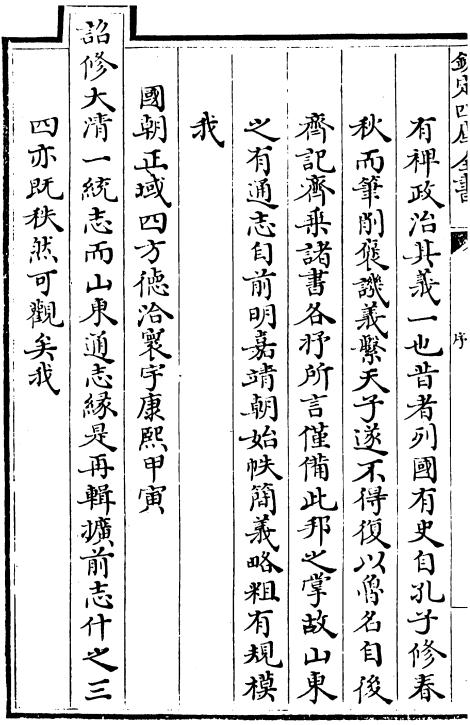 欽定四庫全書
序
有裨政治其義一也昔者列國有史自孔子修春
秋而筆削襃譏義繫天子遂不得復以魯名自後
齊記齊乗諸書各抒所言僅備此邦之掌故山東
之有通志自前明嘉靖朝始帙簡義略粗有規模
我
國朝正域四方德洽寰宇康熙甲寅
詔修大清一統志而山東通志緣是再輯擴前志什之三
四亦既秩然可觀矣我